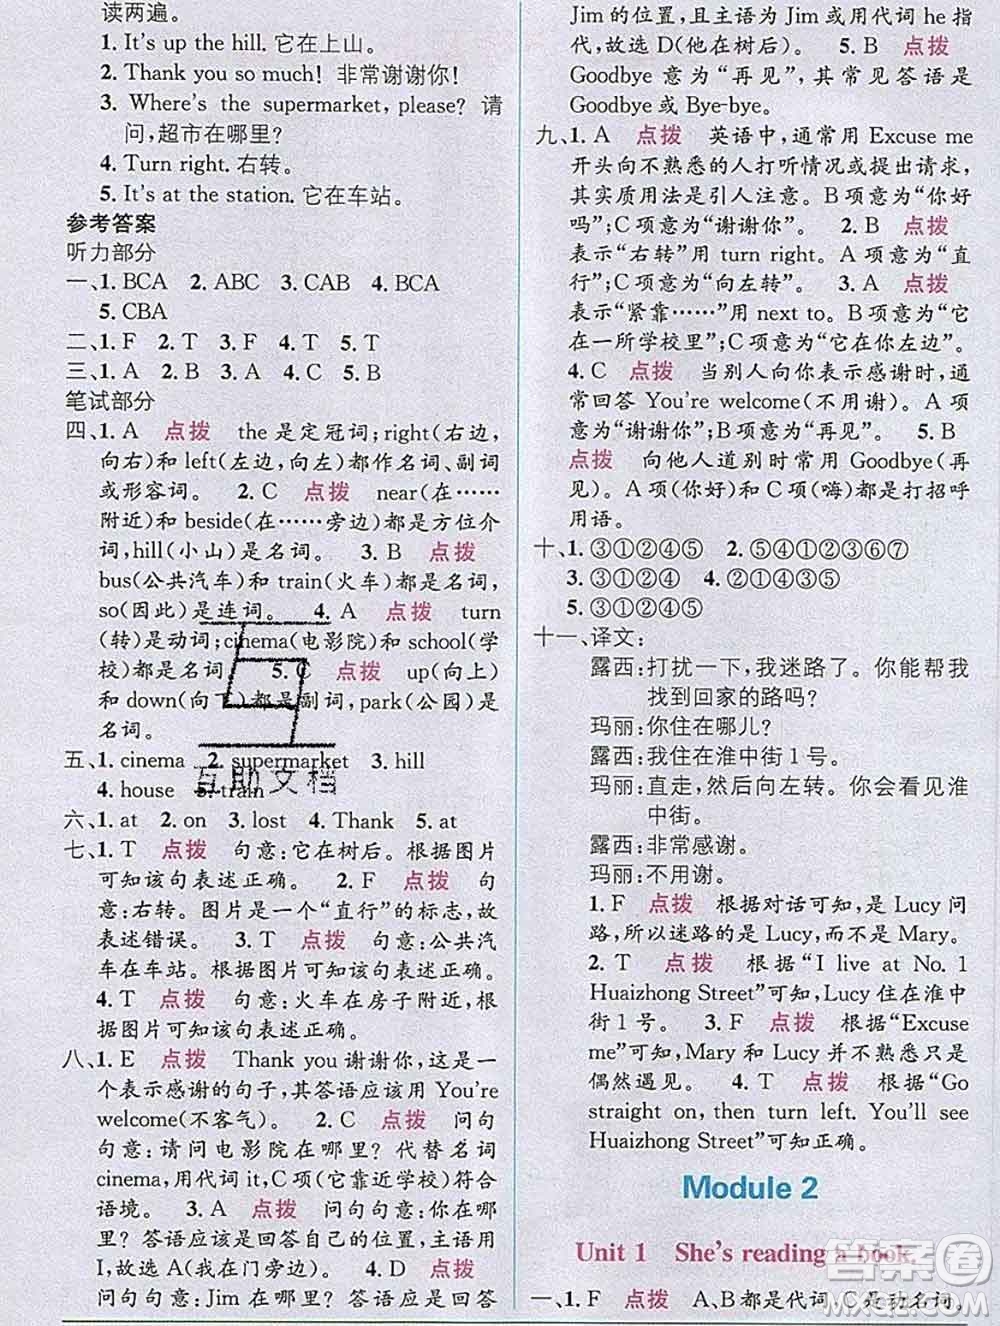 读两遍。
1. It's up the hill. 它在上山。
2. Thank you so much! 非常谢谢你!
3. Where's the supermarket, please? 请
问,超市在哪里?
4. Turn right. 右转。
5. It's at the station. 它在车站。
参考答案
听力部分
一、1. BCA 2. ABC 3. CAB 4. BCA
5. CBA
二、1. F 2. T 3. F 4. T 5. T
三、1. A 2. B 3. A 4. A 5. B
笔试部分
四、1. A 点拨 the 是定冠词;right(右边,
向右)和 left(左边,向左)都作名词、副词
或形容词。 2. C 点拨 near(在……
附近)和 beside(在……旁边)都是方位介
词,hill(小山)是名词。 3. B 点拨
bus(公共汽车)和 train(火车)都是名词,
so(因此)是连词。 4. A 点拨 turn
(转)是动词;cinema(电影院)和 school(学
校)都是名词。 5. C 点拨 up(向上)
和 down(向下)都是副词,park(公园)是
名词。
五、1. cinema 2. supermarket 3. hill
4. house 5. train
六、1. at 2. on 3. lost 4. Thank 5. at
七、1. T 点拨 句意:它在树后。根据图片
可知该句表述正确。 2. F 点拨 句
意:右转。图片是一个“直行”的标志,故
表述错误。 3. T 点拨 句意:公共汽
车在车站。根据图片可知该句表述正确。
4. T 点拨 句意:火车在房子附近,根
据图片可知该句表述正确。
八、1. E 点拨 Thank you 谢谢你,这是一
个表示感谢的句子,其答语应该用 You're
welcome(不客气)。 2. C 点拨 问句
句意:请问电影院在哪里?代替名词
cinema,用代词 it,C 项(它靠近学校)符合
语境。 3. A 点拨 问句句意:你在哪
里?答语应该是回答自己的位置,主语用
I,故选 A(我在门旁边)。 4. D 点拨
问句句意:Jim 在哪里?答语应该是回答
Jim 的位置,且主语为 Jim 或用代词 he 指
代,故选 D(他在树后)。 5. B 点拨
Goodbye 意为“再见”,其常见答语是
Goodbye 或 Bye-bye。
九、1. A 点拨 英语中,通常用 Excuse me
开头向不熟悉的人打听情况或提出请求,
其实质用法是引人注意。B 项意为“你好
吗”;C 项意为“谢谢你”。 2. B 点拨
表示“右转”用 turn right。A 项意为“直
行”;C 项意为“向左转”。 3. A 点拨
表示“紧靠……”用 next to。B 项意为“它
在一所学校里”;C 项意为“它在你左边”。
4. C 点拨 当别人向你表示感谢时,通
常回答 You're welcome(不用谢)。A 项
意为“谢谢你”;B 项意为“再见”。 5. B
点拨 向他人道别时常用 Goodbye(再
见)。A 项(你好)和 C 项(嗨)都是打招呼
用语。
十、1. ③①②④⑤ 2. ⑤④①②③⑥⑦
3. ③①②④⑤ 4. ②①④③⑤
5. ③①②④⑤
十一、译文:
露西:打扰一下,我迷路了。你能帮我
找到回家的路吗?
玛丽:你住在哪儿?
露西:我住在淮中街 1 号。
玛丽:直走,然后向左转。你会看见淮
中街。
露西:非常感谢。
玛丽:不用谢。
1. F 点拨 根据对话可知,是 Lucy 问
路,所以迷路的是 Lucy,而不是 Mary。
2. T 点拨 根据“I live at No. 1
Huaizhong Street”可知,Lucy 住在淮中
街 1 号。 3. F 点拨 根据“Excuse
me”可知,Mary 和 Lucy 并不熟悉只是
偶然遇见。 4. T 点拨 根据“Go
straight on, then turn left. You'll see
Huaizhong Street”可知正确。
Module 2
Unit 1 She's reading a book.
一、1. F 点拨 A、B 都是代词,C 是动名词。
互助文档
答案圈
MXQE.COM